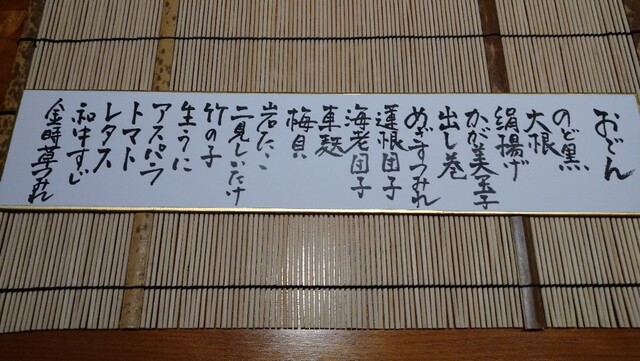 おでん
のど黒
大根
絹揚げ
かが美玉子
出し巻
めぎすつみれ
蓮根団子
海老団子
車麸
梅貝
岩だこ
二見しいたけ
竹の子
生うに
アスパラ
トマト
レタス
和牛すじ
金時草つみれ